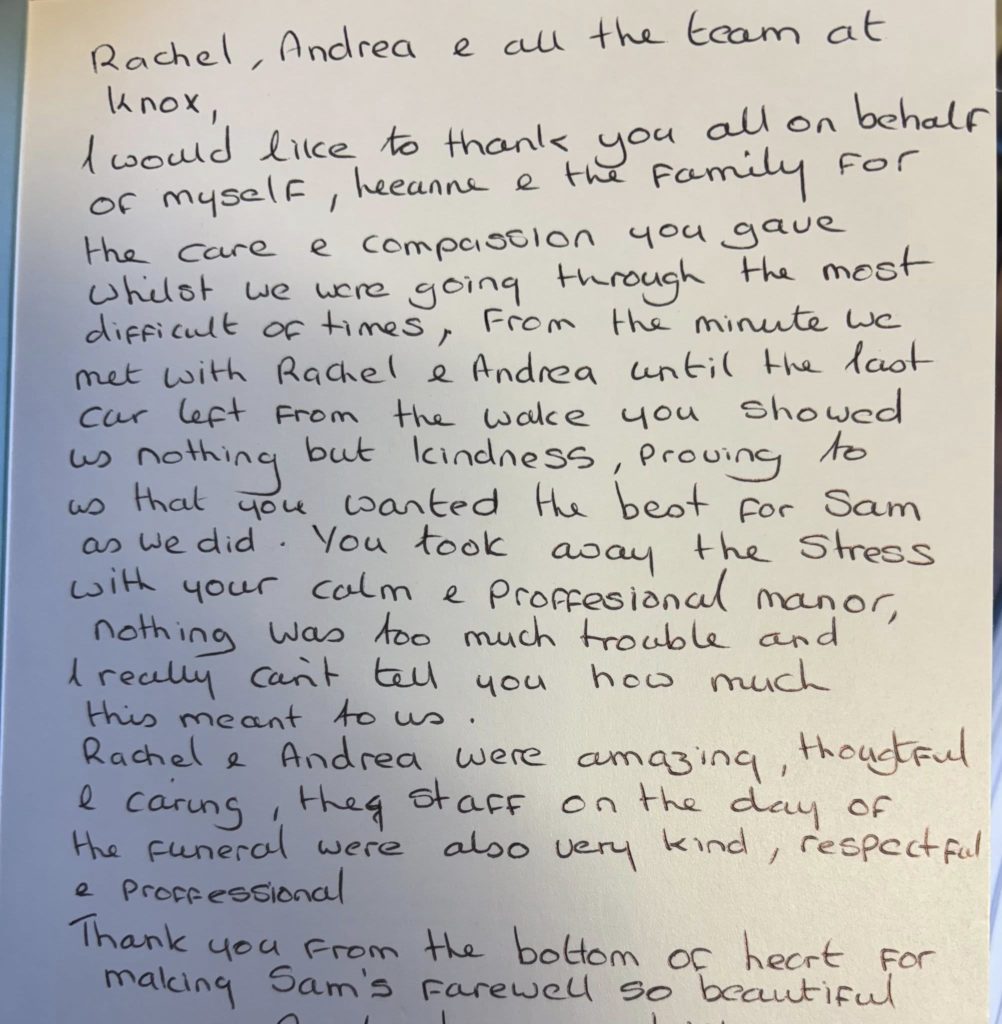 Rachel, Andrea e all the team at
Knox,
I would like to thank you all on behalf
of myself, heeanne e the family for
the care e compassion you gave
whilst we were going through the most
difficult of times, From the minute we
met with Rachel e Andrea until the last
car left from the wake you showed
us nothing but kindness, proving to
us that you wanted the best for Sam
as we did. You took away the stress
with your calm e proffesional manor,
nothing was too much trouble and
I really can't tell you how much
this meant to us.
Rachel e Andrea were amazing, thougtful
e caring, they staff on the day of
the funeral were also very kind, respectful
e proffessional
Thank you from the bottom of heart for
making Sam's farewell so beautiful